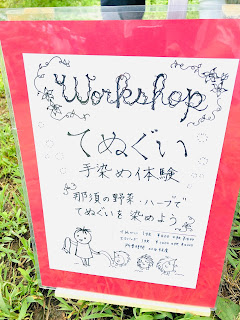 Workshop
てぬぐい
手染め体験
那須の野菜・ハーブで
てぬぐいを染めよう